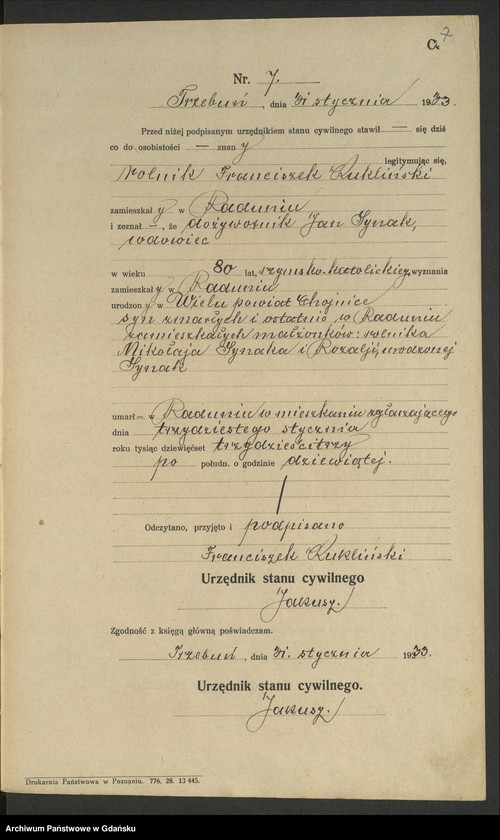 C. 7
Nr. 7.
Trzebuń, dnia 31 stycznia 1933.
Przed niżej podpisanym urzędnikiem stanu cywilnego stawił — się dziś
co do osobistości — znany
legitymując się,
rolnik Franciszek Kukliński
zamieszkały w Raduniu
i zeznał —, że dożywotnik Jan Synak,
wdowiec
w wieku 80 lat, rzymsko-katolickiego wyznania
zamieszkały w Raduniu
urodzony w Wielu powiat Chojnice
syn zmarłych i ostatnio w Raduniu
zamieszkałych małżonków: rolnika
Mikołaja Synaka i Rozalji, urodzonej
Synak
umarł — w Raduniu w mieszkaniu zgłaszającego
dnia trzydziestego stycznia
roku tysiąc dziewięćset trzydzieści trzy
po połudn. o godzinie dziewiątej.
Odczytano, przyjęto i podpisano
Franciszek Kukliński
Urzędnik stanu cywilnego
Jakusz.
Zgodność z księgą główną poświadczam.
Trzebuń, dnia 31. stycznia 1933.
Urzędnik stanu cywilnego.
Jakusz.
Drukarnia Państwowa w Poznaniu. 776, 28. 13 445.
Archiwum Państwowe w Gdańsku